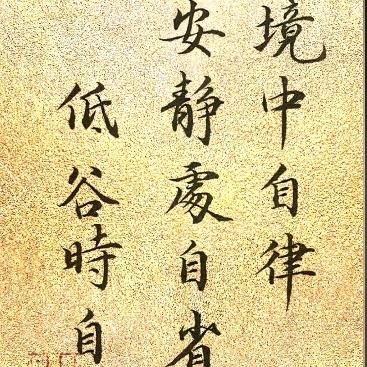 境中自律
安靜處自省
低谷時自